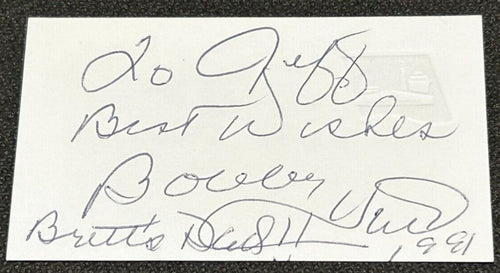 To Jeff
Best Wishes
Bobby Hull
Brett's Dad!! 1991